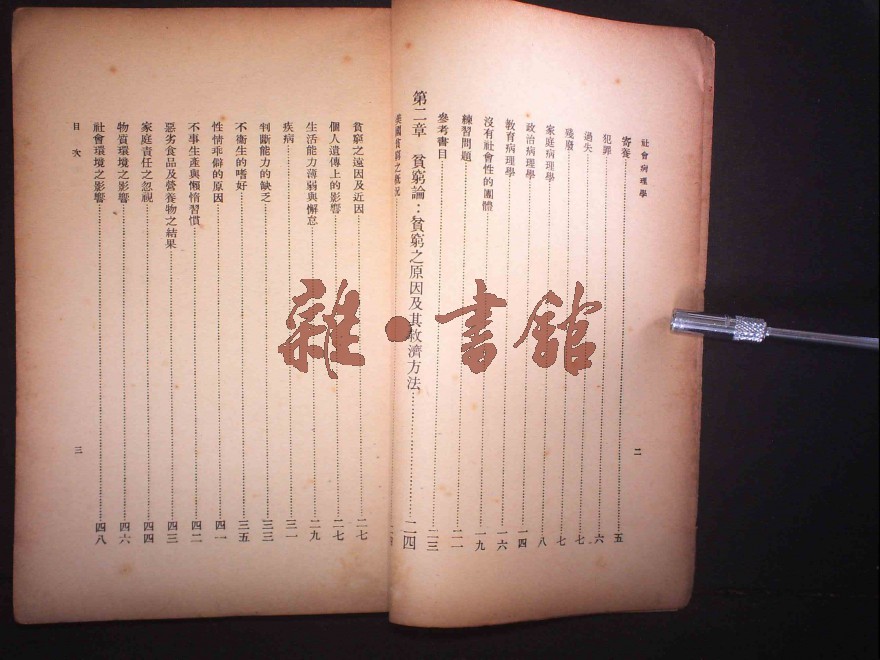 社會病理學
二
寄養……五
犯罪……六
過失……七
殘廢……七
家庭病理學……八
政治病理學……一四
教育病理學……一六
沒有社會性的團體……一九
練習問題……二一
參考書目……二三
第二章　貧窮論：貧窮之原因及其救濟方法……二四
美國貧窮之概況……二四
貧窮之遠因及近因……二七
個人遺傳上的影響……二七
生活能力薄弱與懈怠……二九
疾病……三一
判斷能力的缺乏……三三
不衞生的嗜好……三五
性情乖僻的原因……四一
不事生產與懶惰習慣……四二
惡劣食品及營養物之結果……四三
家庭責任之忽視……四四
物質環境之影響……四六
社會環境之影響……四八
目次
三
雜・書館